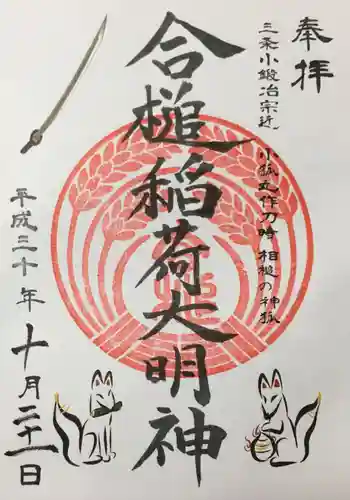 奉拝
三条小鍛冶宗近 小狐丸作刀時 相槌の神狐
合槌稲荷大明神
平成三十年
十月二十一日